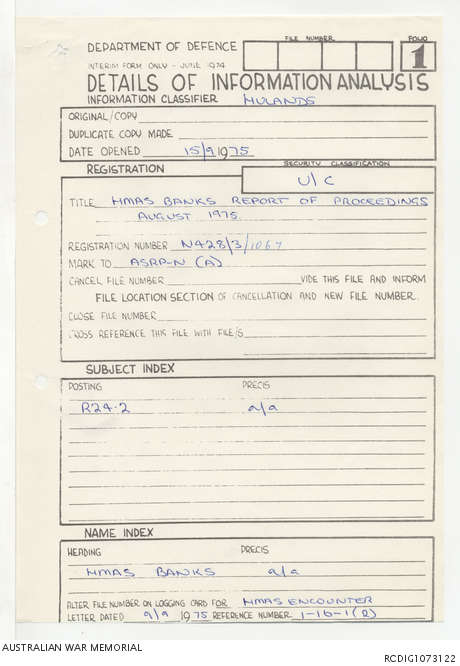 DEPARTMENT OF DEFENCE
FILE NUMBER
FOLIO
1
INTERIM FORM ONLY - JUNE 1974
DETAILS OF INFORMATION ANALYSIS
INFORMATION CLASSIFIER HULANDS
ORIGINAL/COPY
DUPLICATE COPY MADE
DATE OPENED 15/9/1975
REGISTRATION
SECURITY CLASSIFICATION
U/C
TITLE HMAS BANKS REPORT OF PROCEEDINGS
AUGUST 1975.
REGISTRATION NUMBER N428/3/1067
MARK TO ASRP-N (A)
CANCEL FILE NUMBER VIDE THIS FILE AND INFORM
FILE LOCATION SECTION OF CANCELLATION AND NEW FILE NUMBER.
CLOSE FILE NUMBER
CROSS REFERENCE THIS FILE WITH FILE/S
SUBJECT INDEX
POSTING PRECIS
R24-2 a/a
NAME INDEX
HEADING PRECIS
HMAS BANKS a/a
ALTER FILE NUMBER ON LOGGING CARD FOR HMAS ENCOUNTER
LETTER DATED 9/9 1975 REFERENCE NUMBER 1-16-1(2)
AUSTRALIAN WAR MEMORIAL
RCDIG1073122